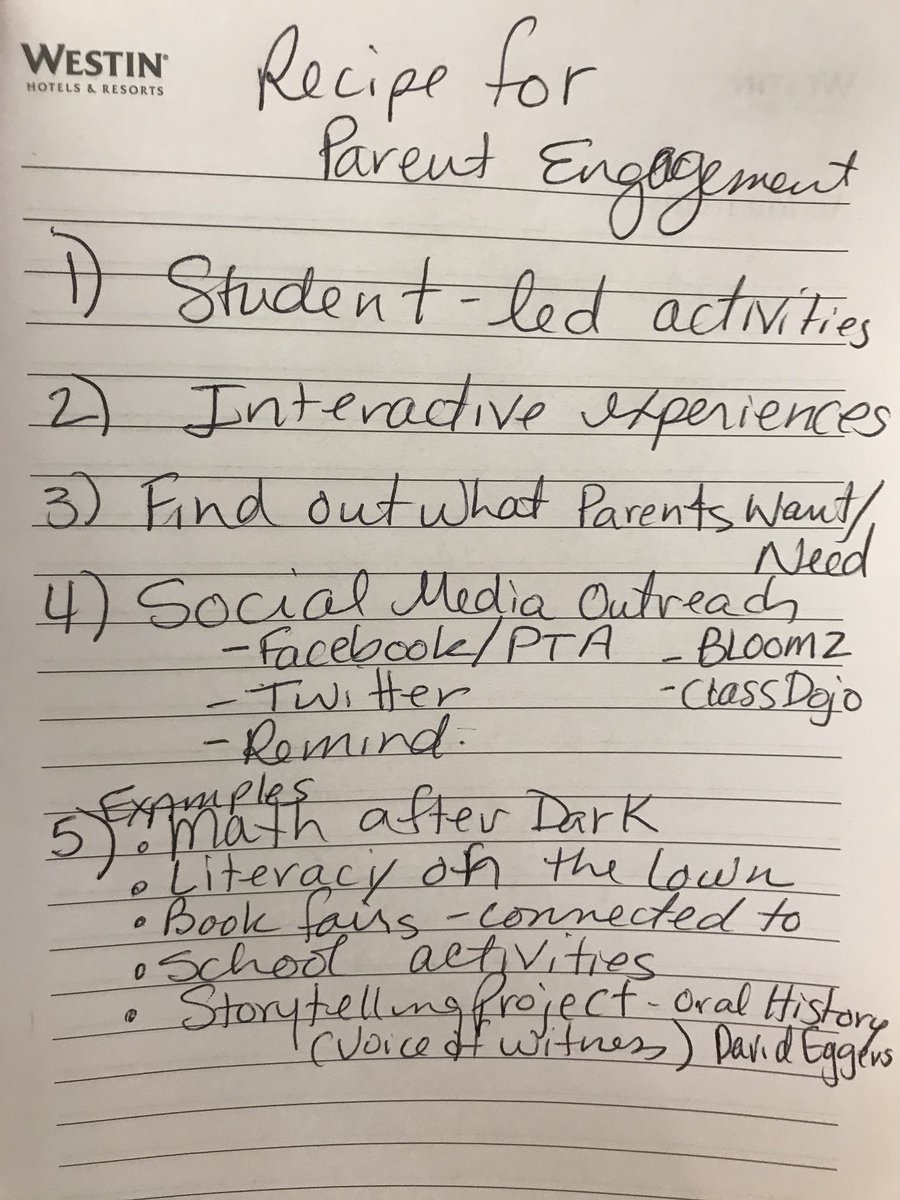 WESTIN®
HOTELS & RESORTS
Recipe for
Parent Engagement
1) Student-led activities
2) Interactive experiences
3) Find out what Parents Want/
Need
4) Social Media Outreach
- Facebook/PTA - BLOOMZ
- Twitter - ClassDojo
- Remind.
Examples
5) • Math after Dark
• Literacy on the lawn
• Book fairs - connected to
• School activities
• Storytelling Project - Oral History
(Voice of Witness) David Eggers